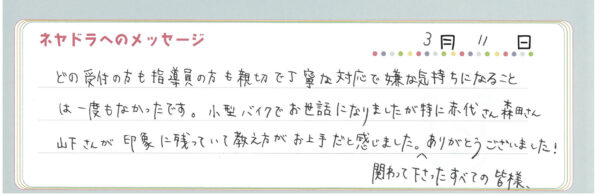 ネヤドラへのメッセージ
3月 11日
どの受付の方も指導員の方も親切で丁寧な対応で嫌な気持ちになること
は一度もなかったです。小型バイクでお世話になりましたが特に赤代さん森田さん
山下さんが印象に残っていて教え方がお上手だと感じました。ありがとうございました！
関わって下さったすべての皆様、